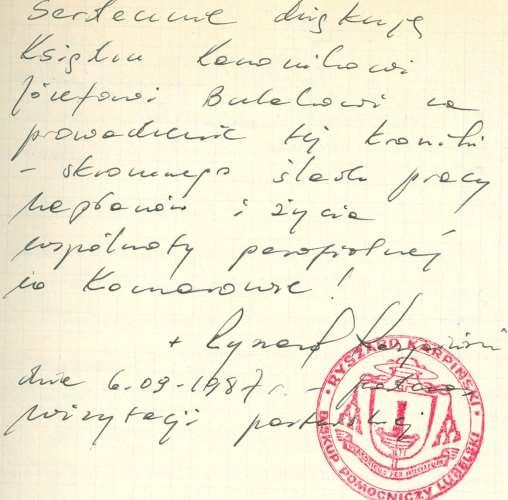 Serdecznie dziękuję
Księdzu Kanonikowi
Józefowi Bulakowi za
prowadzenie tej kroniki
- skromnego śladu pracy
kapłanów i życia
wspólnoty parafialnej
w Komarowie!
+ Ryszard Karpiński
dnia 6.09-1987 r. - podczas
wizytacji pasterskiej
RYSZARD KARPIŃSKI
BISKUP POMOCNICZY LUBELSKI